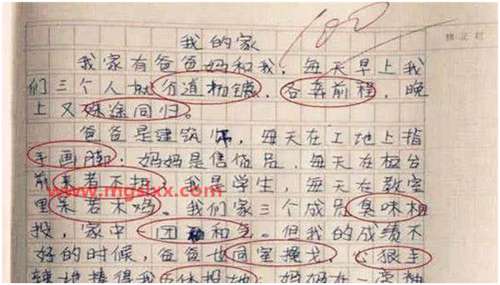 我的家
100
我家有爸爸妈和我，每天早上我
们三个人就分道扬镳，各奔前程，晚
上又殊途同归。
爸爸是建筑师，每天在工地上指
手画脚；妈妈是售货员，每天在柜台
前来者不拒；我是学生，每天在教室
里呆若木鸡。我们家三个成员臭味相
投，家中一团和气。但我的成绩不
好的时候，爸爸也同室操戈，心狠手
辣地揍得我五体投地，妈妈在一旁袖
www.mgslxx.com